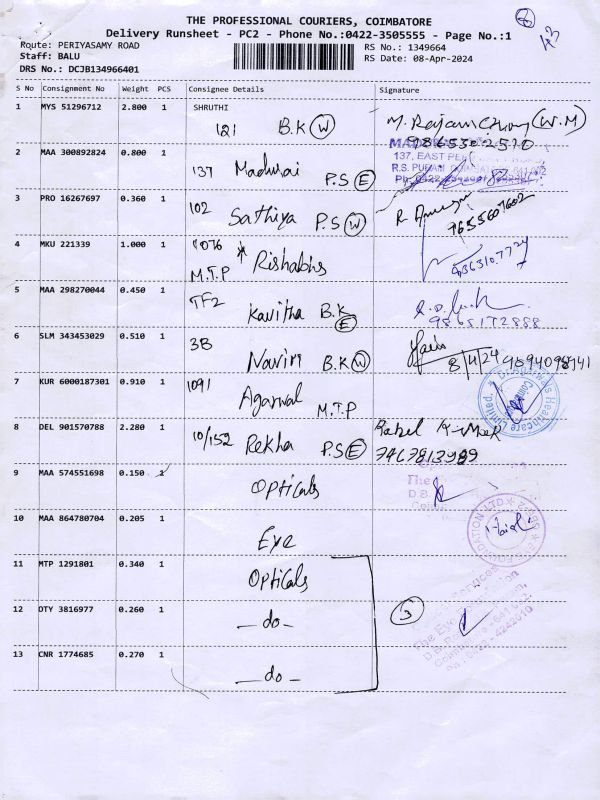 THE PROFESSIONAL COURIERS, COIMBATORE
Delivery Runsheet - PC2 - Phone No.:0422-3505555 - Page No.:1
Route: PERIYASAMY ROAD
Staff: BALU
DRS No.: DCJB134966401
RS No.: 1349664
RS Date: 08-Apr-2024
S No Consignment No Weight PCS Consignee Details Signature
1 MYS 51296712 2.800 1 SHRUTHI
121 B.K (W)
(W.M)
9865302510
2 MAA 300892824 0.800 1
137 Madurai P.S (E)
137, EAST
3 PRO 16267697 0.360 1
102 Sathiya P.S (W)
7655607602
4 MKU 221339 1.000 1
1076 * Rishabhs
M.T.P
9363107724
5 MAA 298270044 0.450 1
TF2 Kavitha B.K (E)
9865172888
6 SLM 343453029 0.510 1
3B Naviri B.K (W)
8/4/24
7 KUR 6000187301 0.910 1
1091 Agarwal M.T.P
Healthcare Limited
8 DEL 901570788 2.280 1
10/152 Rekha P.S (E)
9 MAA 574551698 0.150 1
Opticals
The
D.B.
10 MAA 864780704 0.205 1
Eye
FOUNDATION LTD
11 MTP 1291801 0.340 1
Opticals
12 DTY 3816977 0.260 1
- do -
(3)
The Eye Foundation
13 CNR 1774685 0.270 1
- do -